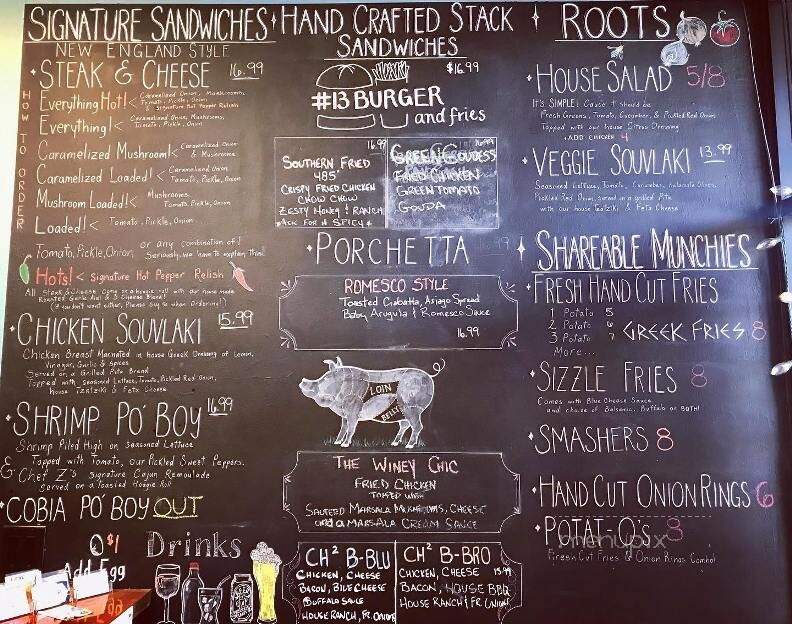 SIGNATURE SANDWICHES
NEW ENGLAND STYLE
STEAK & CHEESE 16.99
HOW TO ORDER
Everything Hot! < Caramelized Onion, Mushrooms,
Tomato, Pickle, Onion
& Signature Hot Pepper Relish
Everything! < Caramelized Onion, Mushrooms,
Tomato, Pickle, Onion
Caramelized Mushroom! < Caramelized Onion
& Mushrooms
Caramelized Loaded! < Caramelized Onion
Tomato, Pickle, Onion
Mushroom Loaded! < Mushrooms,
Tomato, Pickle, Onion
Loaded! < Tomato, Pickle, Onion
Tomato, Pickle, Onion or any combination of!
Seriously, we have to explain this!
Hots! < Signature Hot Pepper Relish
All Steak & Cheese Come on a hoagie roll with our house made
Roasted Garlic Aioli & 3 Cheese Blend!
(If you don't want either, Please Say so when Ordering!)
CHICKEN SOUVLAKI 15.99
Chicken Breast Marinated in house Greek Dressing of Lemon,
Vinegar, Garlic & Spices
Served on a Grilled Pita Bread
Topped with seasoned Lettuce, Tomato, Pickled Red Onion,
house Tzatziki & Feta Cheese
SHRIMP PO' BOY 16.99
Shrimp Piled High on Seasoned Lettuce
Topped with Tomato, our Pickled Sweet Peppers,
& Chef Z's Signature Cajun Remoulade
Served on a Toasted Hoagie Roll
COBIA PO' BOY OUT
$1
Add Egg
Drinks
HAND CRAFTED STACK
SANDWICHES
$16.99
#13 BURGER
and fries
16.99
SOUTHERN FRIED
485'
CRISPY FRIED CHICKEN
CHOW CHOW
ZESTY HONEY & RANCH
ASK FOR IT SPICY
16.99
GREEN GOUDESS
FRIED CHICKEN
GREEN TOMATO
GOUDA
PORCHETTA 16.99
ROMESCO STYLE
Toasted Ciabatta, Asiago Spread
Baby Arugula & Romesco Sauce
16.99
LOIN
BELLY
THE WINEY CHIC
FRIED CHICKEN
TOPPED WITH
SAUTEED MARSALA MUSHROOMS, CHEESE
and a MARSALA CREAM SAUCE
CH² B-BLU
CHICKEN, CHEESE
BACON, BLUE CHEESE
BUFFALO SAUCE
HOUSE RANCH, FR. ONIONS
CH² B-BRO
CHICKEN, CHEESE 15.99
BACON, HOUSE BBQ
HOUSE RANCH & FR. ONIONS
ROOTS
HOUSE SALAD 5/8
IT'S SIMPLE! Cause it should be
Fresh Greens, Tomato, Cucumber, & Pickled Red Onion
Topped with our house Citrus Dressing
ADD CHICKEN 4
VEGGIE SOUVLAKI 13.99
Seasoned Lettuce, Tomato, Cucumber, Kalamata Olives,
Pickled Red Onion, served on a grilled Pita
with our house Tzatziki & Feta Cheese
SHAREABLE MUNCHIES
FRESH HAND CUT FRIES
1 Potato 5
2 Potato 6
3 Potato 7
More...
GREEK FRIES 8
SIZZLE FRIES 8
Comes with Blue Cheese Sauce
and choice of Balsamic, Buffalo or BOTH!
SMASHERS 8
HAND CUT ONION RINGS 6
POTAT-O's 8
menupix
Fresh Cut Fries & Onion Rings Combo!